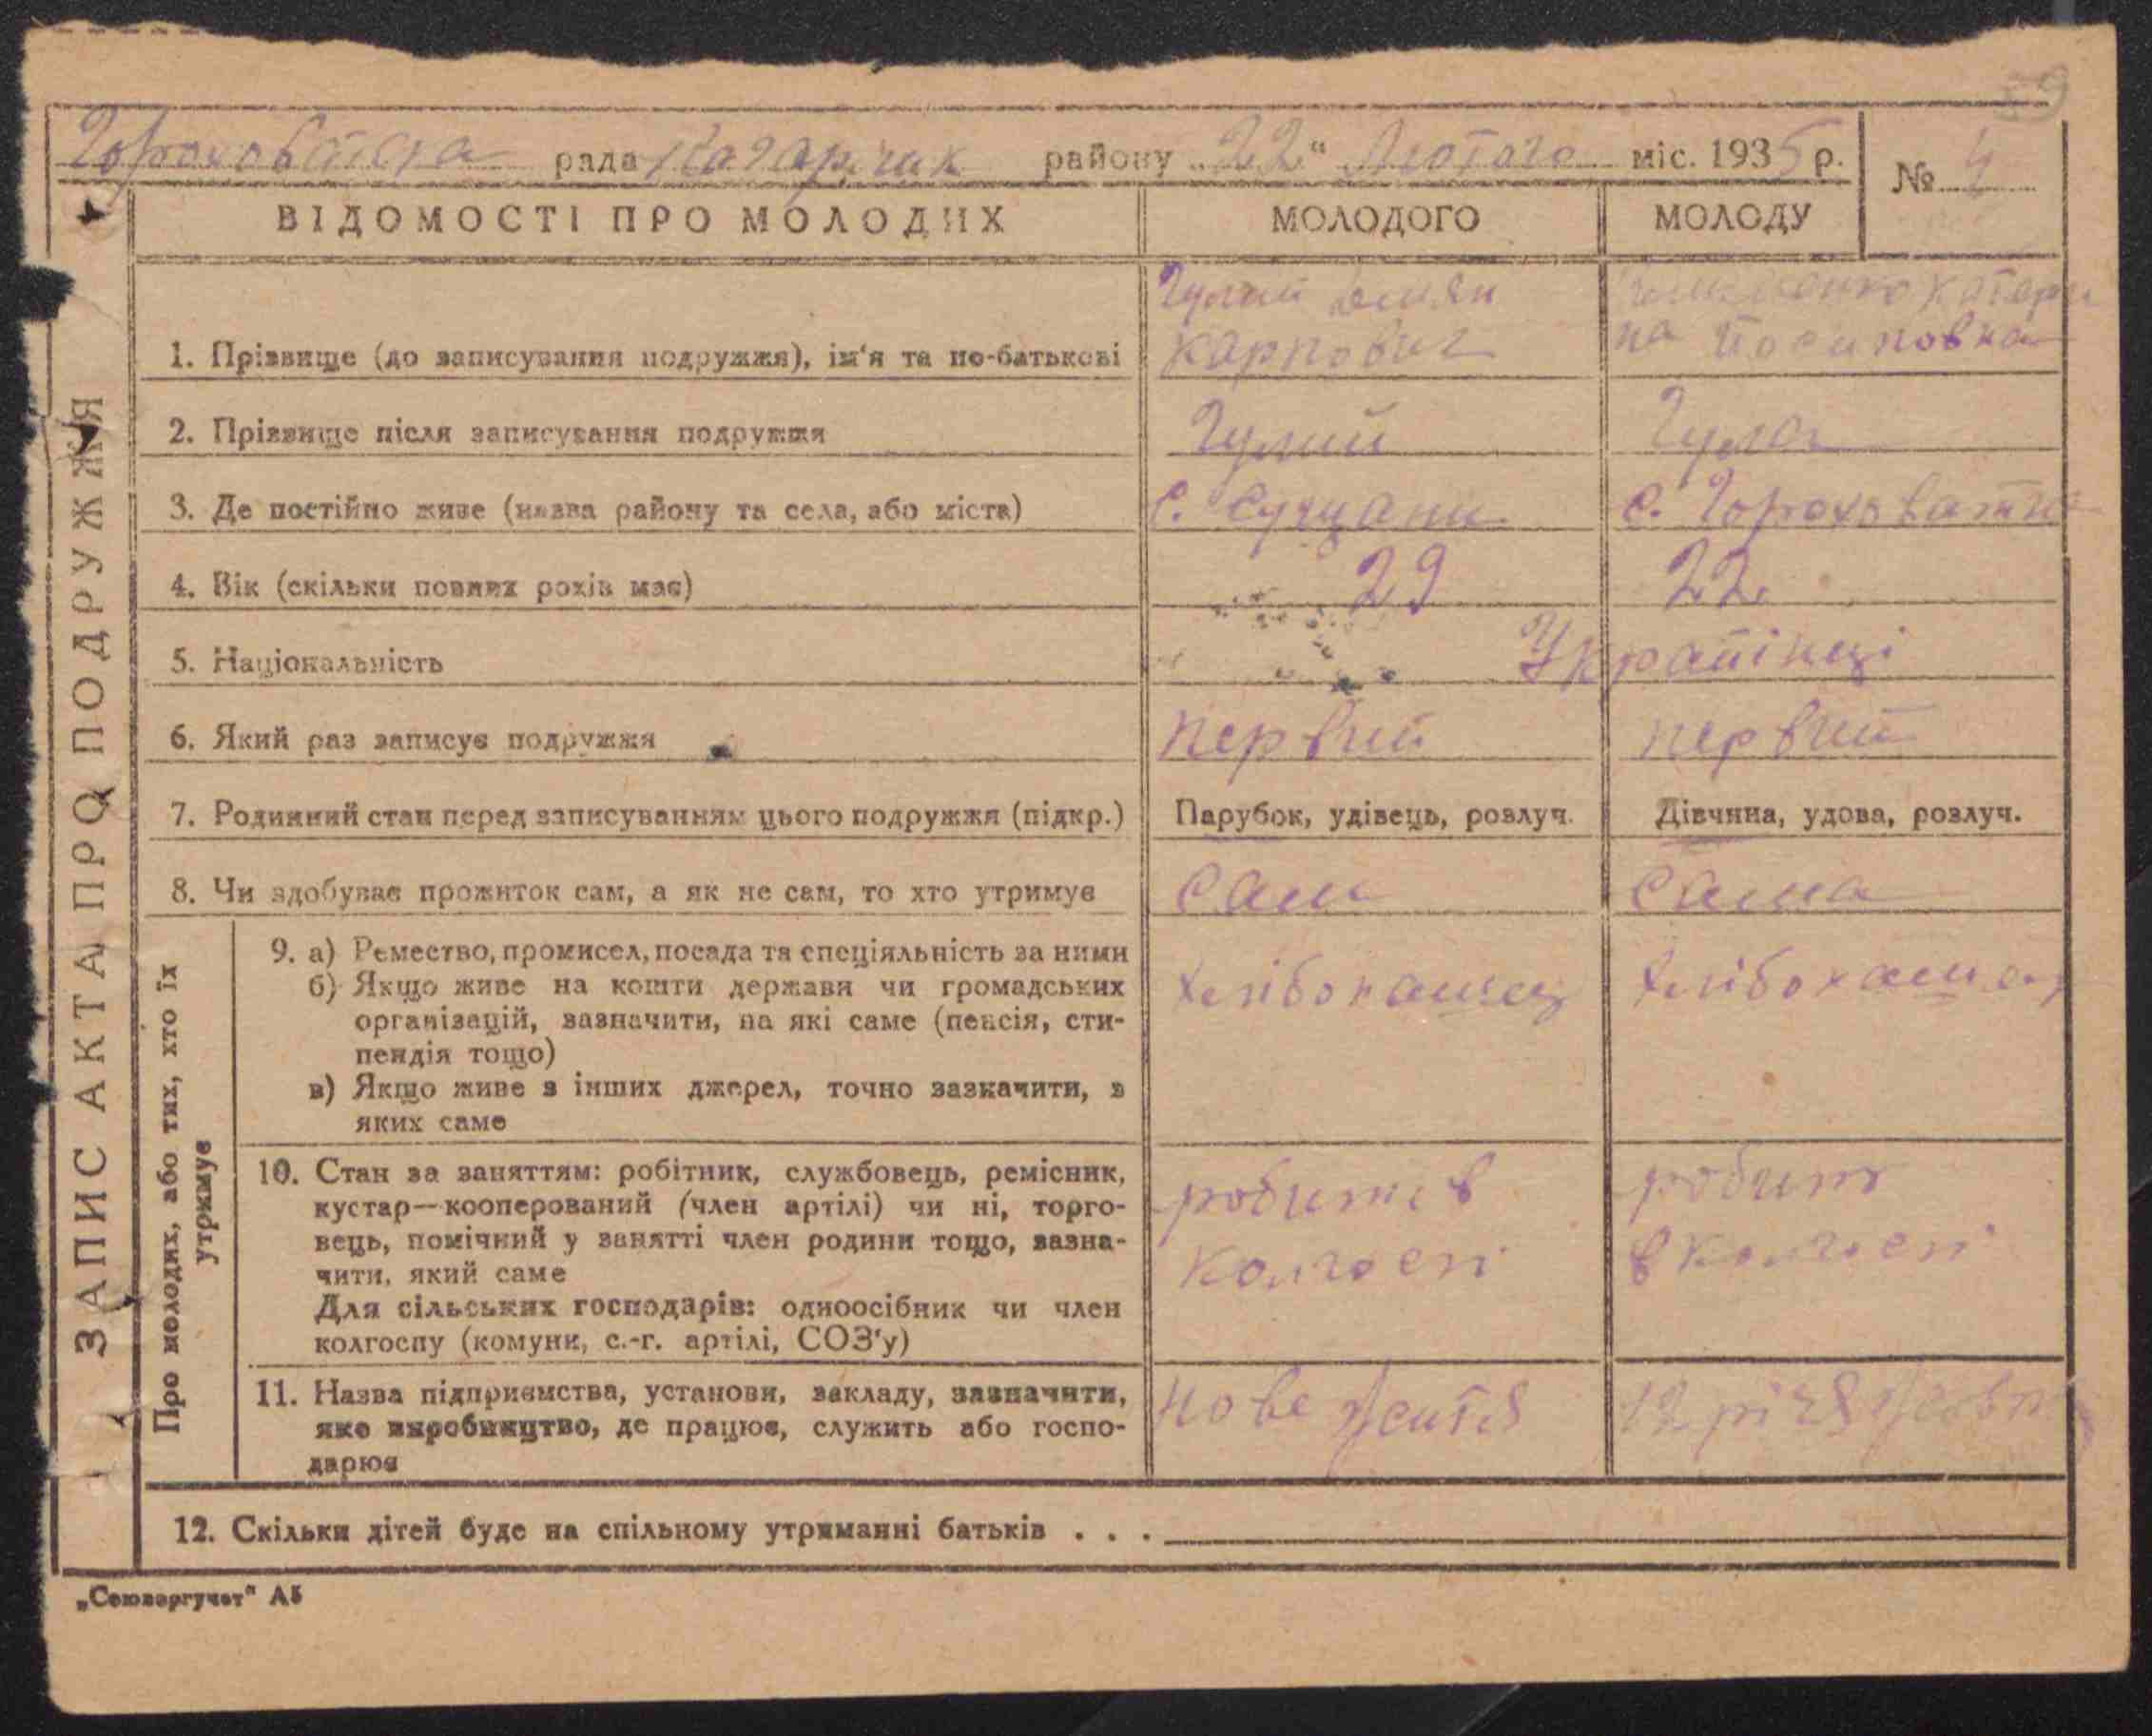 59
Гороховатська рада Кагарлик району „22“ Лютого міс. 1935 р.
№ 4
ВІДОМОСТІ ПРО МОЛОДИХ
МОЛОДОГО
МОЛОДУ
ЗАПИС АКТА ПРО ПОДРУЖЖЯ
1. Прізвище (до записування подружжя), ім'я та по-батькові
Гулий Демян
Карпович
Катери
на Йосиповна
2. Прізвище після записування подружжя
Гулий
Гула
3. Де постійно живе (назва району та села, або міста)
с. Сущани
с. Гороховатка
4. Вік (скільки повних років має)
29
22
5. Національність
Українці
6. Який раз записує подружжя
первий
первий
7. Родинний стан перед записуванням цього подружжя (підкр.)
Парубок, удівець, розлуч.
Дівчина, удова, розлуч.
8. Чи здобуває прожиток сам, а як не сам, то хто утримує
Сам
Сама
Про молодих, або тих, хто їх
утримує
9. а) Ремество, промисел, посада та спеціяльність за ними
б) Якщо живе на кошти держави чи громадських
організацій, зазначити, на які саме (пенсія, сти-
пендія тощо)
в) Якщо живе з інших джерел, точно зазначити, з
яких саме
10. Стан за заняттям: робітник, службовець, ремісник,
кустар—кооперований (член артілі) чи ні, торго-
вець, помічний у занятті член родини тощо, зазна-
чити, який саме
Для сільських господарів: одноосібник чи член
колгоспу (комуни, с.-г. артілі, СОЗ'у)
в
колгоспі
робить
в колгоспі
11. Назва підприємства, установи, закладу, зазначити,
яке виробництво, де працює, служить або госпо-
дарює
Нове Життя
річя Жовтн
12. Скільки дітей буде на спільному утриманні батьків . . .
„Союзоргучет“ А5